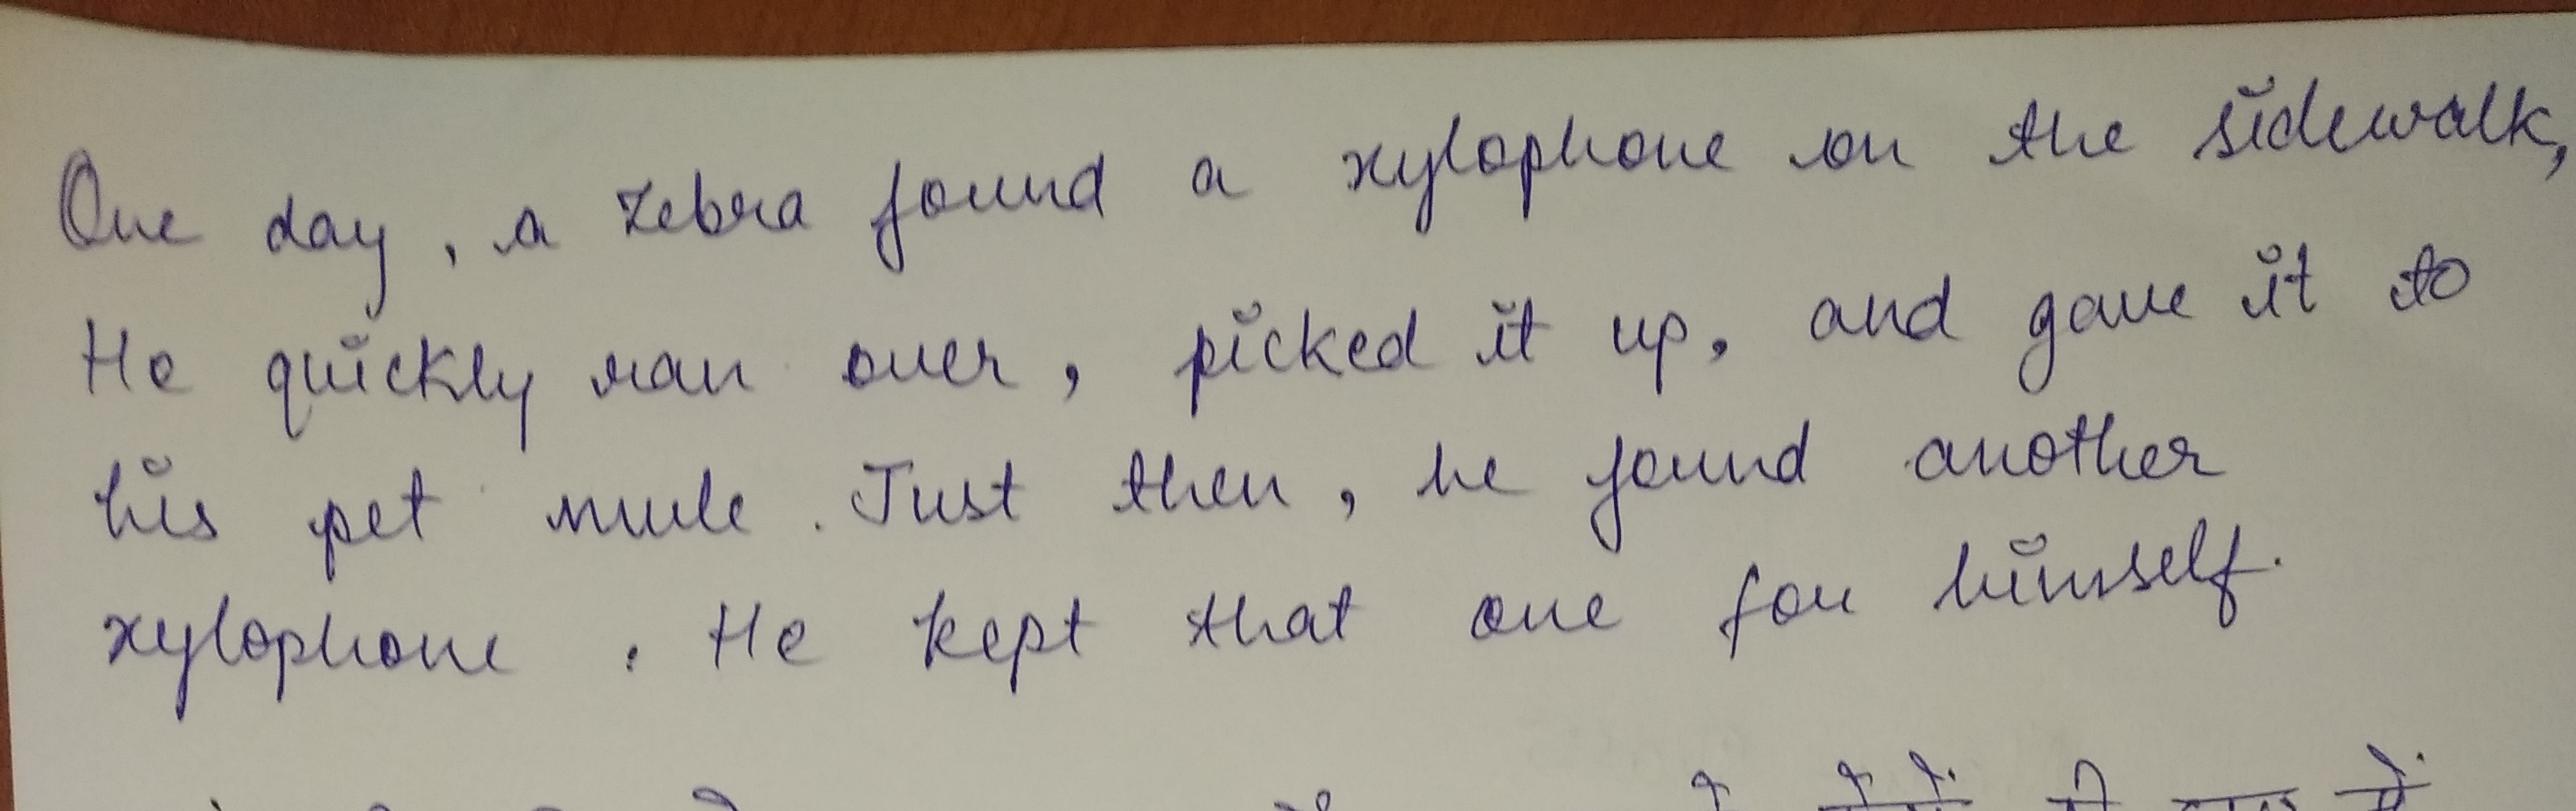 One day, a zebra found a xylophone on the sidewalk,
He quickly ran over, picked it up, and gave it to
his pet mule. Just then, he found another
xylophone. He kept that one for himself.